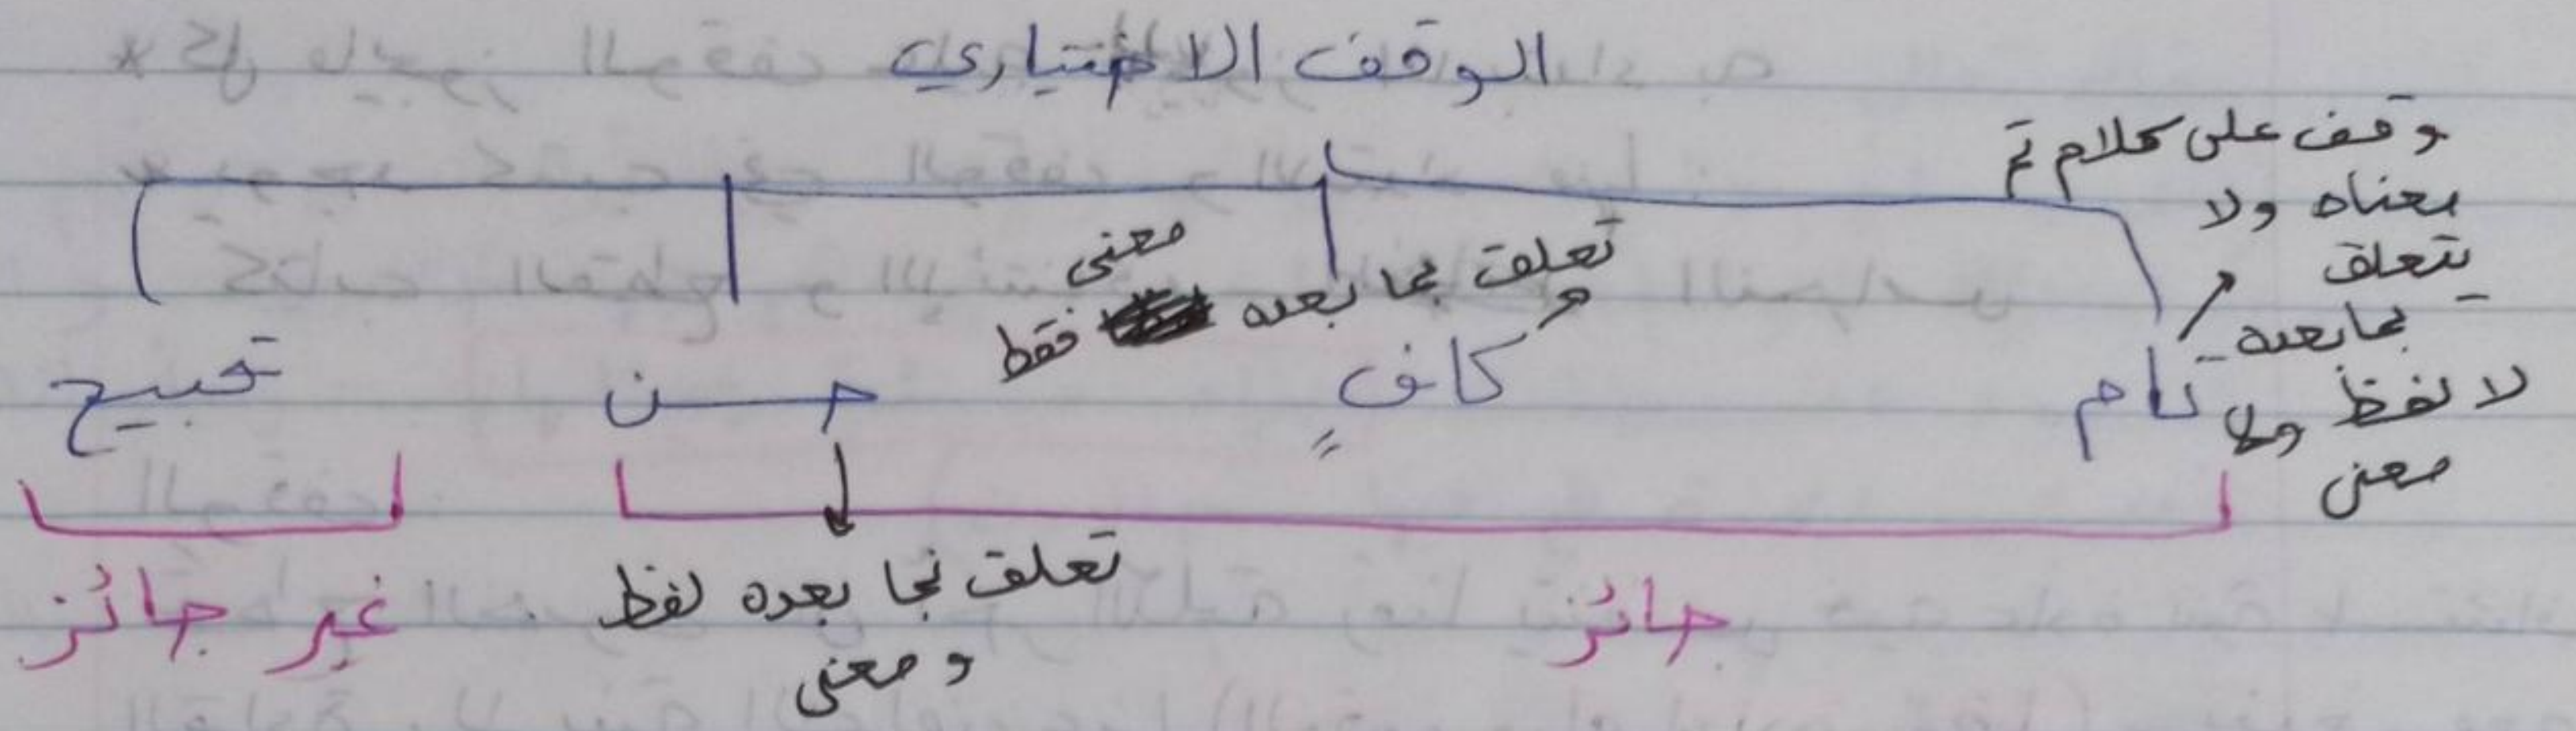 الوقف الاختياري
وقف على كلام تم
معناه ولا
يتعلق
بما بعده
لا لفظ ولا
معنى
تعلق بما بعده معنى فقط
تام
كافٍ
حسن
قبيح
تعلق بما بعده لفظ
ومعنى
جائز
غير جائز